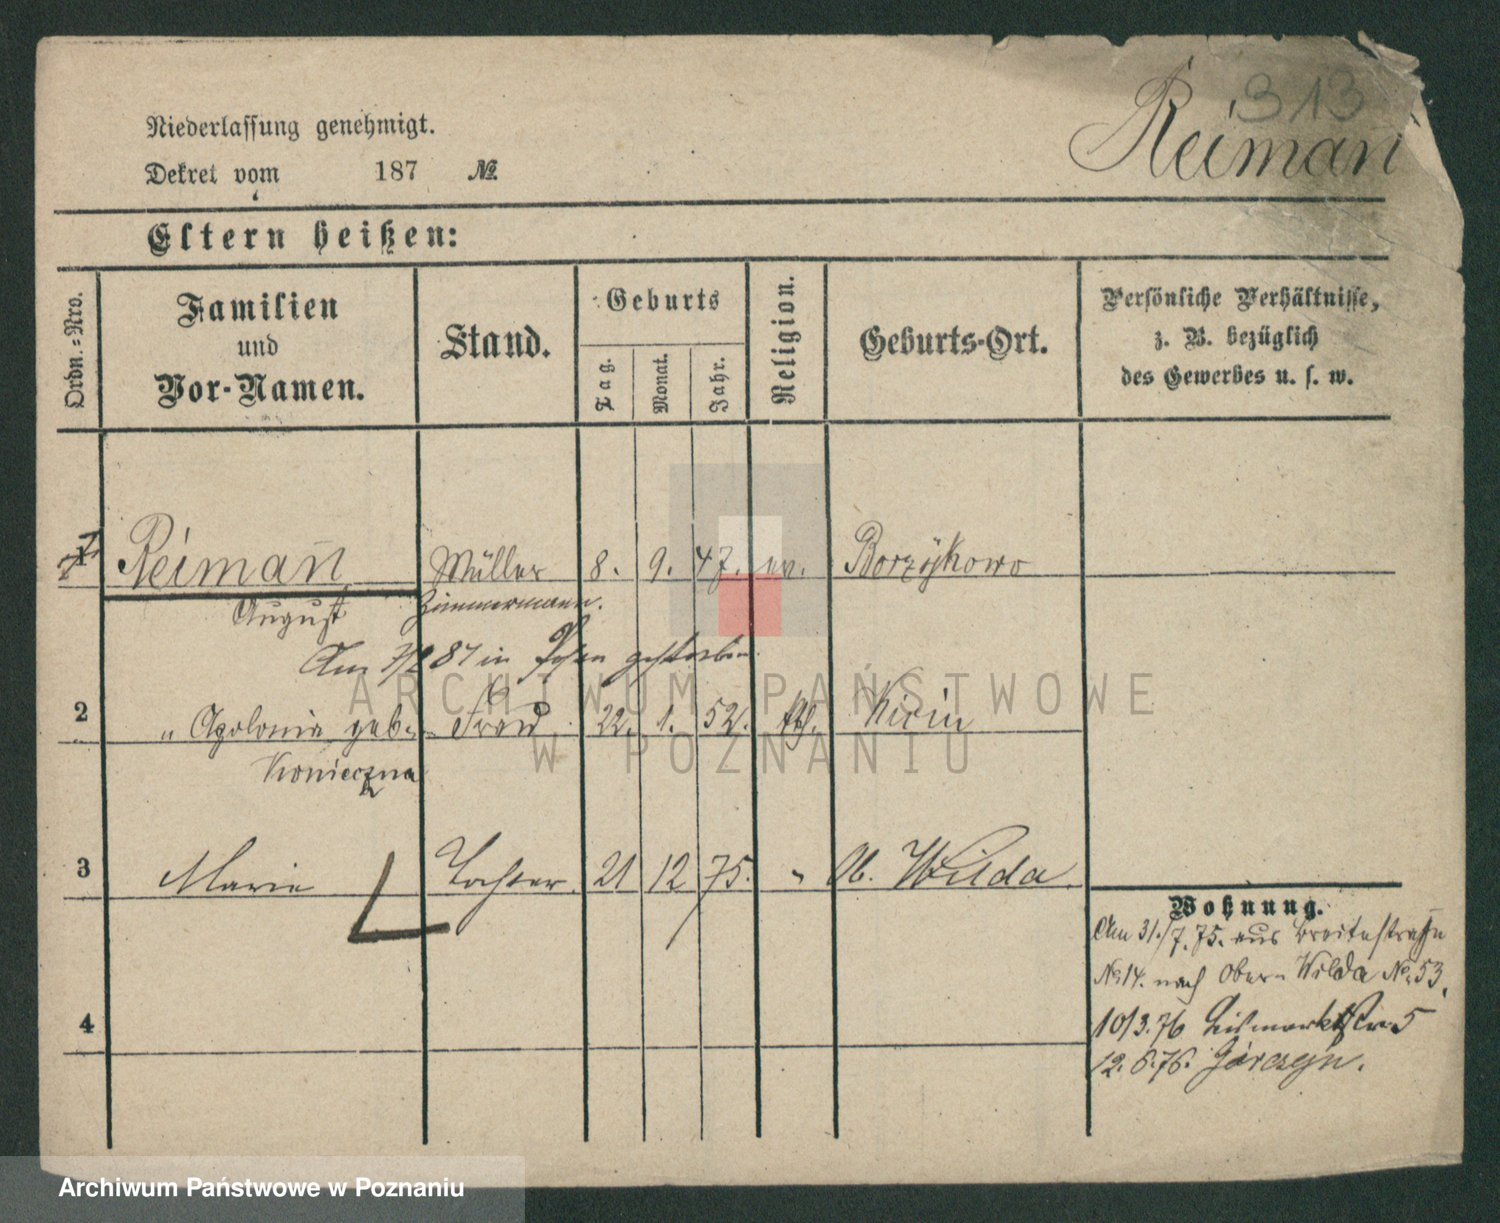 313
Niederlassung genehmigt.
Reiman̄
Dekret vom 187 №
Eltern heißen:
Ordn.=Nro.
Familien
und
Vor-Namen.
Stand.
Geburts
Tag.
Monat.
Jahr.
Religion.
Geburts-Ort.
Persönliche Verhältnisse,
z. B. bezüglich
des Gewerbes u. s. w.
1 Reiman̄ Müller 8. 9. 47. ev. Borzykowo
August Zimmermann.
Am 7/2 87 in Posen gestorben
2 " Apolonia geb. Frau 22. 1. 52. kth. Kicin
Konieczna
3 Marie Tochter 21 12 75. " Ob. Wilda
4
Wohnung.
Am 31./7. 75. aus Breitestraße
No 14. nach Ober- Wilda No. 53.
10/3. 76 5
12. 6. 76. Górczyn.
ARCHIWUM PAŃSTWOWE
W POZNANIU
Archiwum Państwowe w Poznaniu